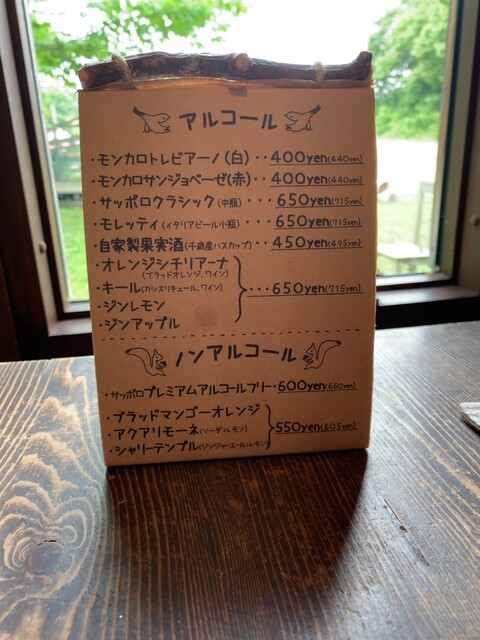 アルコール
・モンカロトレビアーノ(白)・・400yen(440yen)
・モンカロサンジョベーゼ(赤)・・400yen(440yen)
・サッポロクラシック(中瓶)・・・650yen(715yen)
・モレッティ(イタリアビール小瓶)・・・650yen(715yen)
・自家製果実酒(千歳産ハスカップ)・・450yen(495yen)
・オレンジシチリアーナ
(ブラッドオレンジ、ワイン)
・キール(カシスリキュール、ワイン)
・・650yen(715yen)
・ジンレモン
・ジンアップル
ノンアルコール
・サッポロプレミアムアルコールフリー・600yen(660yen)
・ブラッドマンゴーオレンジ
・アクアリモーネ(ソーダ+レモン)
550yen(605yen)
・シャリーテンプル(ジンジャーエール+レモン)